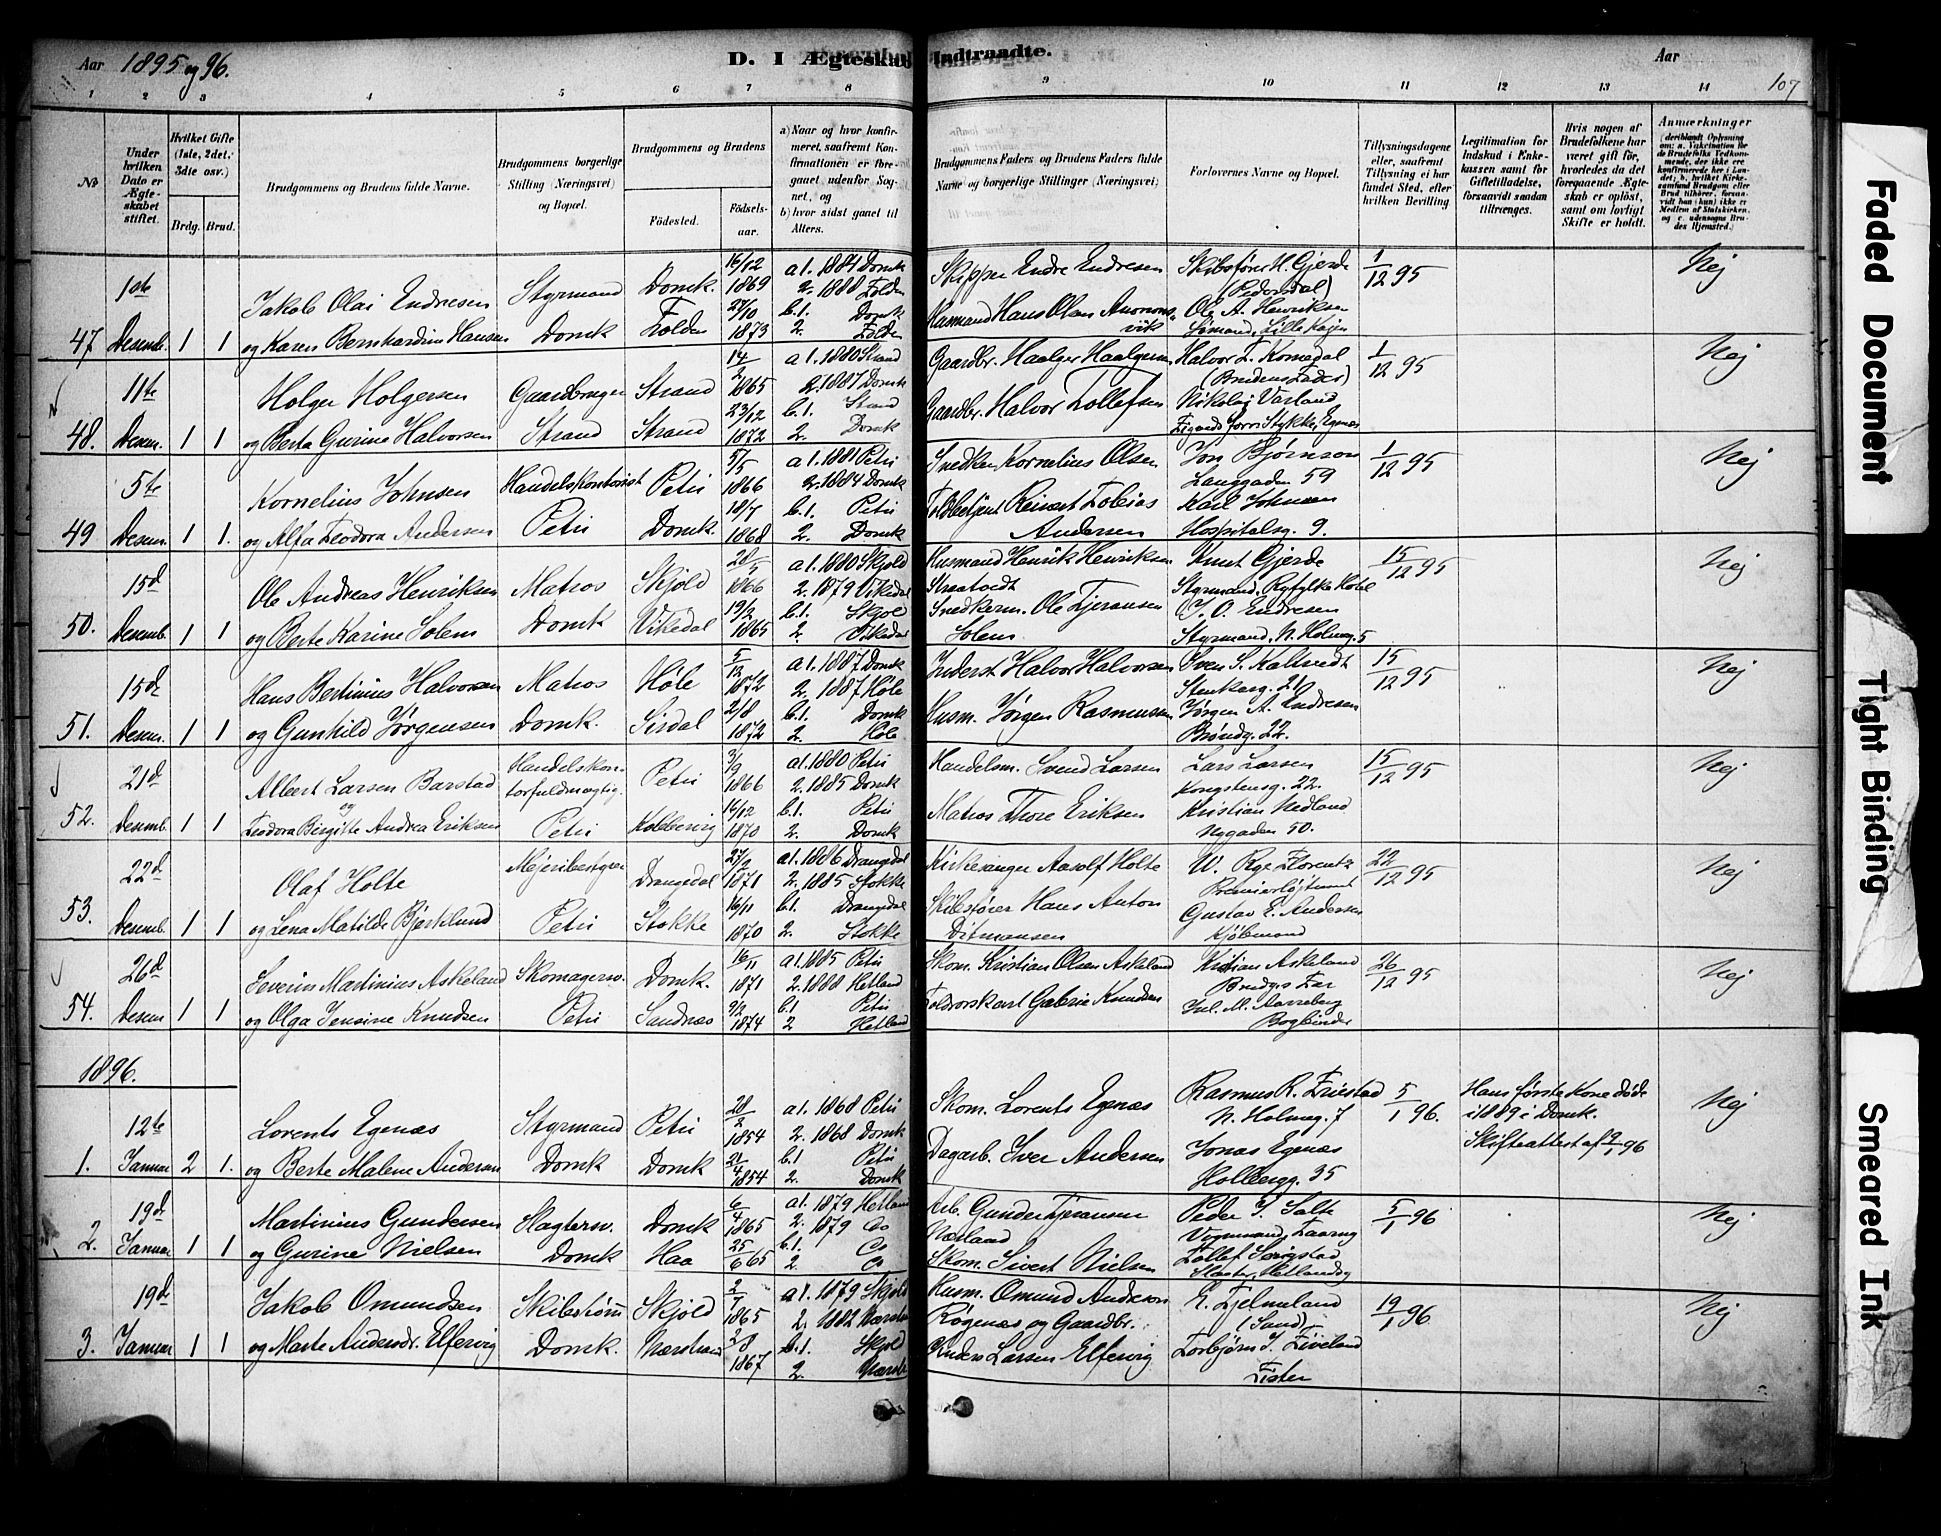 Aar 1895 og 96.
D. I Ægteskab Indtraadte.
Aar
107
1 2 3 4 5 6 7 8 9 10 11 12 13 14
No
Under hvilken Dato er Ægteskabet stiftet.
Hvilket Gifte (1ste, 2det, 3die osv.)
Brdg. Brud.
Brudgommens og Brudens fulde Navne.
Brudgommens borgerlige Stilling (Næringsvei) og Bopæl.
Brudgommens og Brudens
Födested.
Födsels-aar.
a) Naar og hvor konfirmeret, saafremt Konfirmationen er foregaaet udenfor Sognet, og
b) hvor sidst gaaet til Alters.
Brudgommens Faders og Brudens Faders fulde Navne og borgerlige Stillinger (Næringsvei)
Forlovernes Navne og Bopæl.
Tillysningsdagene eller, saafremt Tillysning ei har fundet Sted, efter hvilken Bevilling
Legitimation for Indskud i Enkekassen samt for Giftetilladelse, forsaavidt saadan tiltrænges.
Hvis nogen af Brudefolkene har været gift för, hvorledes da det foregaaende Ægteskab er oplöst, samt om lovligt Skifte er holdt.
Anmærkninger
47. 10de Desemb. 1 1
Jakob Olai Endresen
og Karen Bernhardine Hansen
Styrmand
Domk
Domk.
Folden
16/12 1869
27/10 1873
a 1. 1884 Domk
2. 1888 Folden
b. 1. Domk
2. Folden
Skipper Endre Endresen
Husmand Hans Olsen
Skibsfører H. Gjerde
Ole A. Henriksen
Sømand, Lille
1/12 95
Nej
48. 11te Desem. 1 1
Holger Holgersen
og Berta Gurine Halvorsen
Gaardbruger
Strand
Strand
Strand
14/2 1865
23/12 1872
a 1. 1880 Strand
2. 1887 Domk
b. 1. Strand
2. Domk
Gaardbr. Haalger Haalgersen
Gaardbr. Halvor Tollefsen
Halvor T. Komedal
(Brudens Fader)
Nikolaj Varland
1/12 95
Nej
49 5te Desem. 1 1.
Kornelius Johnsen
og Alfa Teodora Andersen
Handelskontorist
Petri
Petri
Domk.
5/5 1866
18/7 1868
a 1. 1881 Petri
2. 1884 Domk
b. 1. Petri
2. Domk
Snedker Kornelius Olsen
Toldbetjent Reinert Tobias Andersen
Jon Bjørnson
Langgaden 59
Karl Johnsen
Hospitalsg. 9.
1/12 95
Nej
50. 15d Desemb. 1 1
Ole Andreas Henriksen
og Berte Karine Solem
Matros
Domk
Skjold
Vikedal
28/5 1866
19/2 1865
a 1. 1880 Skjold
2. 1879 Vikedal
b. 1. Skjol
2. Vikedal
Husmand Henrik Henriksen
Snedkerm. Ole Tjeransen Solem
Knut Gjerde
Styrmand, Ryfylke Hotel
J. O. Endresen
Styrmand, N. Holmeg. 5
15/12 95
Nej
51. 15d Desem. 1 1
Hans Bertinius Halvorsen
og Gunhild Jørgensen
Matros
Domk.
Høle
Sirdal
5/12 1872
2/8 1872
a 1. 1887 Domk
2. 1887 Høle
b. 1. Domk
2. Høle
Inderst Halvor Halvorsen
Husm. Jørgen Rasmussen
Sven S. Kaltvedt
Stenkarg. 21
Jørgen A. Endresen
Brøndg. 22.
15/12 95
Nej
52. 21d Desemb. 1 1
Albert Larsen Barstad
og
Teodora Birgitte Andrea Eriksen
Handelskontorfuldmægtig.
Petri
Petri
Kobbervig
3/9 1866
16/12 1870
a 1. 1880 Petri
2. 1885 Domk
b. 1. Petri
2. Domk
Handelsm. Svend Larsen
Matros Thore Eriksen
Lars Larsen
Kongstensg. 22.
Kristian Nedland
Nygaden 50.
15/12 95
Nej
53. 22d Desemb. 1 1
Olaf Holte
og Lena Matilde Bjerklund
Mejeribestyrer
Petri
Drangedal
Stokke
27/2 1871
16/11 1870
a 1. 1886 Drangedal
2. 1885 Stokke
b. 1 Drangedal
2. Stokke
Kirkesanger Aasolf Holte
Skibsfører Hans Anton Ditmansen
W. Rge Florentz
Premierløjtnant
Gustav E. Andersen
Kjøbmand
22/12 95
Nej
54. 26d Desem 1 1
Severin Martinius Askeland
og Olga Jensine Knudsen
Skomagersv.
Petri
Domk.
Sandnæs
16/11 1871
9/2 1874
a 1. 1885 Petri
2. 1888 Hetland
b. 1 Petri
2 Hetland
Skom. Kristian Olsen Askeland
Gabriel Knudsen
Kristian Askeland
Brudgs Far
Bogbinder
26/12 95
Nej
1896.
1. 12te Januar 2 1.
Lorents Egenæs
og Berte Malene Andersen
Styrmand
Domk
Petri
Domk
28/2 1854
21/4 1854
a 1. 1868 Petri
2. 1868 Domk
b. 1 Petri
2. Domk
Skom. Lorents Egenæs
Dagarb. Iver Andersen
Rasmus R. Friestad
N. Holmeg. 7
Jonas Egenæs
Holbergg. 35
5/1 96.
Hans første Kone døde i 1889 i Domk.
Skifteattest af 9/1 96
Nej
2. 19d Januar 1 1
Martinius Gundersen
og Gurine Nielsen
Slagtersv.
Domk
Domk
Haa
6/4 1865
25/6 65
a 1. 1879 Hetland
2. 1879 Do
b. 1. Do
2. Do
Arb. Gunder Tjeransen Nærland
Skom. Sivert Nielsen
Peder J. Salte
Vognmand,
Tollef
Slagter, Hetlandsg
5/1 96
Nej
3. 19d Januar 1 1
Jakob Omundsen
og Marte Andersdr. Elfervig
Skibstømm
Domk.
Skjold
Nærstrand
2/7 1865
2/8 1867
a 1. 1879 Skjold
2. 1882 Nærstrand
b. 1. Skjol
2. Nærstr
Husm. Omund Andreson Røgenæs og Gaardbr.
Anders Larsen Elfervig
E. Fjelmeland
(Sand)
Torbjørn J. Fiveland
Fister
19/1 96
Nej
Faded Document
Tight Binding
Smeared Ink